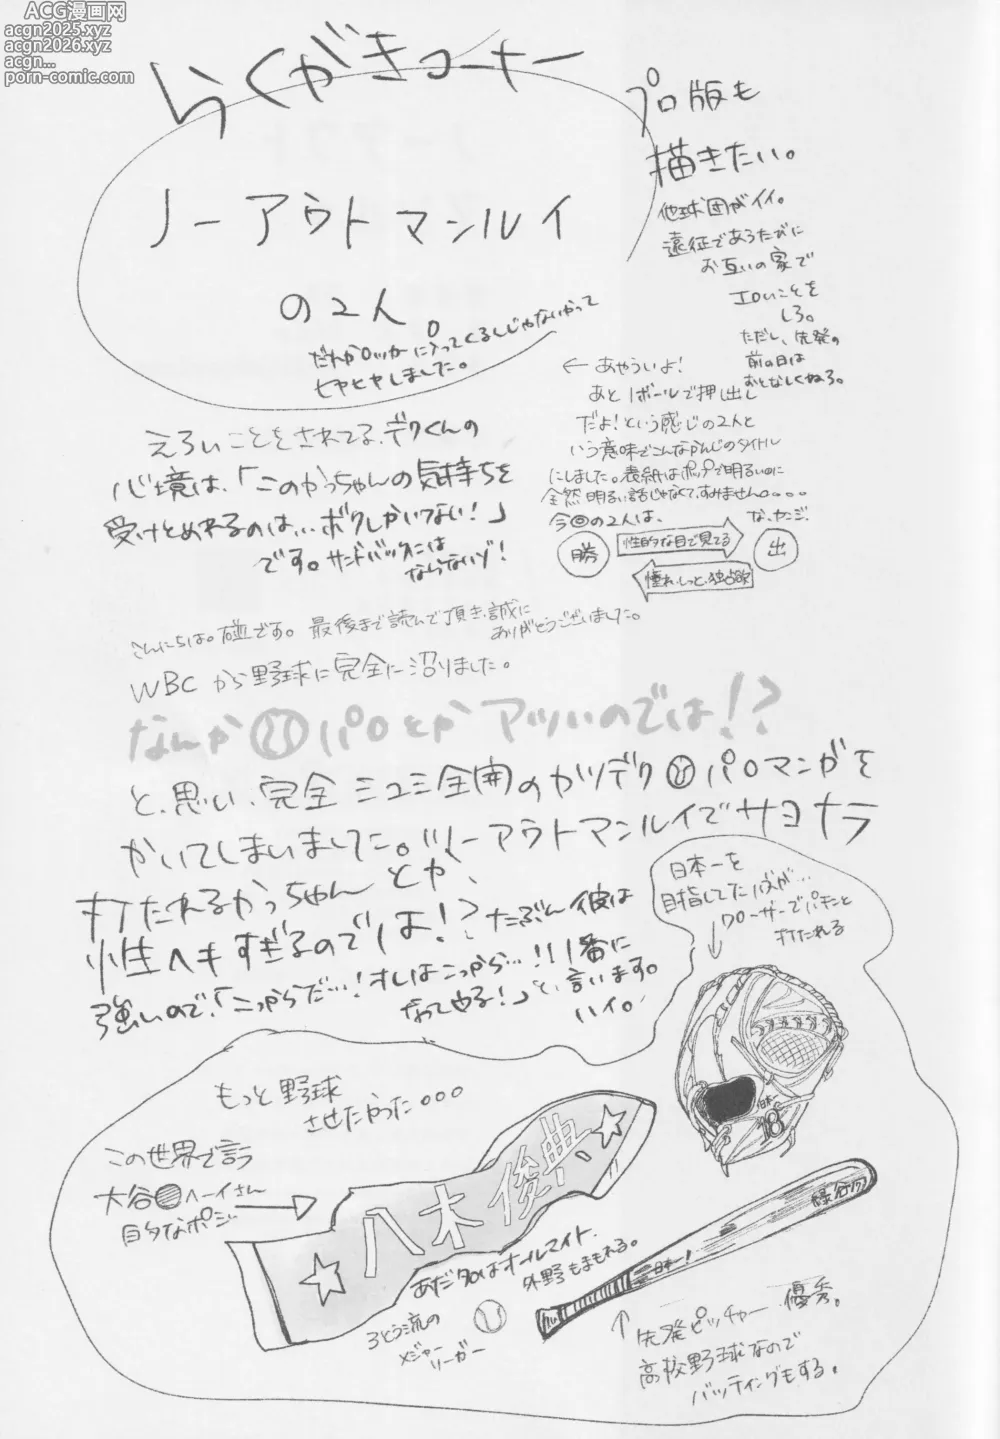 ACG漫画网
acgn2025.xyz
acgn2026.xyz
acgn...
porn-comic.com
らくがきコーナー
ノーアウトマンルイ
の2人。
だれかロッカーに入ってくるんじゃないかって
ヒヤヒヤしました。
プロ版も
描きたい。
他球団がイイ。
遠征であうたびに
お互いの家で
エロいことを
しろ。
ただし、先発の
前の日は
おとなしくねろ。
← あやういよ!
あと1ボールで押し出し
だよ!という感じの2人と
いう意味でこんなかんじのタイトル
にしました。表紙はポップで明るいのに
全然明るい話じゃなくてすみません。...
今回の2人は、
な、カンジ.
勝
性的な目で見てる
出
憧れ・しっと・独占欲
えろいことをされてる、デクくんの
心境は、「このかっちゃんの気持ちを
受けとめれるのは...ボクしかいない!」
です。サンドバックには
ならないゾ!
こんにちは。碰です。最後まで読んで頂き、誠に
ありがとうございました。
WBCから野球に完全に沼りました。
なんか パロとかアツいのでは!?
と、思い、完全ミユミ全開のカツデク パロマンガを
かいてしまいました。ノーアウトマンルイでサヨナラ
打たれるかっちゃんとか、
性ヘキすぎるのでは!?たぶん彼は
強いので、「こっからだ...!オレはこっから...!!1番に
なってやる!」と、言います。
ハイ。
日本一を
目指してたハズが...
クローザーでパキンと
打たれる
もっと野球
させたかった。。。
この世界で言う
大谷 ヘーイさん
的なポジ
八木俊典
あだ名はオールマイト.
外野もまもれる。
3とう流の
メジャー
リーガー
日本一
18
緑谷
日本一!
先発ピッチャー 優秀。
高校野球なので
バッティングもする。